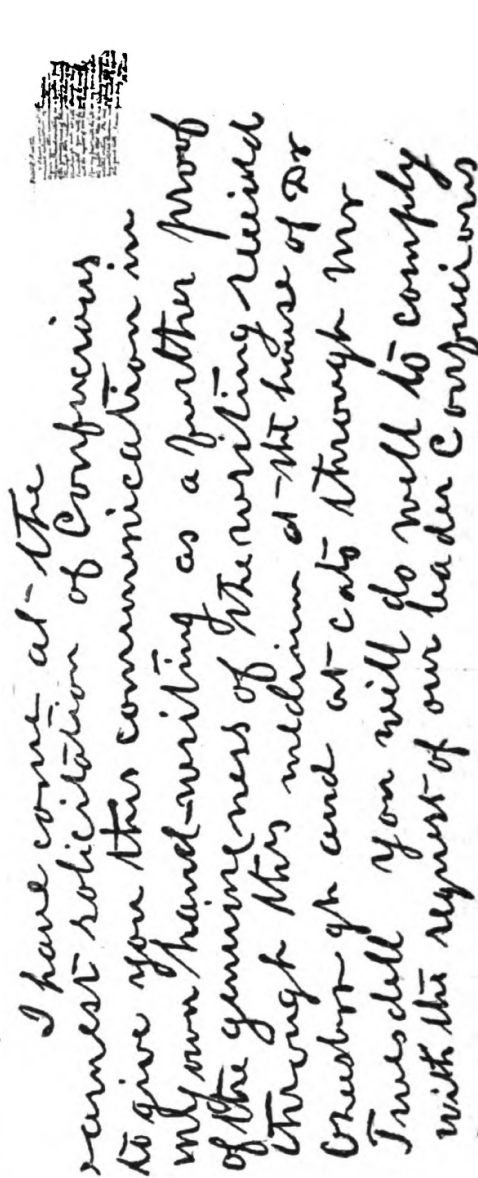 I have come at the
earnest solicitation of Confucious
to give you this communication in
my own hand-writing as a further proof
of the genuineness of the writing received
through this medium at the house of Dr
and at through Mr
Truesdell you will do well to comply
with the request of our leader Confucious